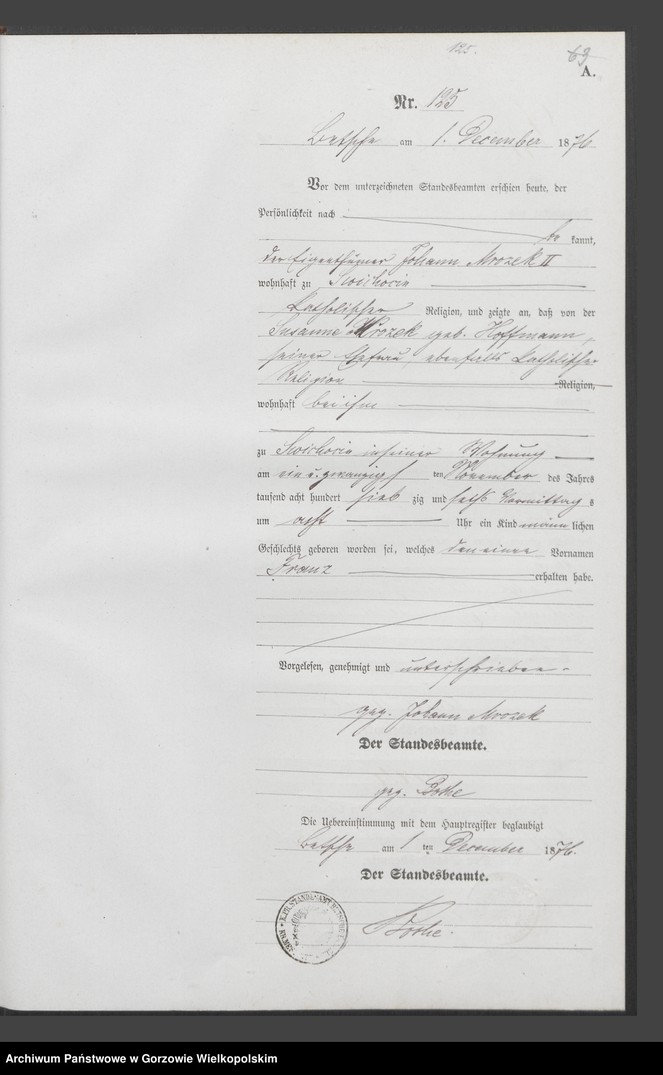 125.
63
A.
Nr. 125
Betsche am 1. December 1876
Vor dem unterzeichneten Standesbeamten erschien heute, der
Persönlichkeit nach
be kannt,
der Eigenthümer Johann Mrozek II
wohnhaft zu
katholischer Religion, und zeigte an, daß von der
Susanne Mrozek geb. Hoffmann,
seiner Ehefrau, ebenfalls katholischer
Religion Religion,
wohnhaft bei ihm
zu in seiner Wohnung
am ein u. zwanzigs ten November des Jahres
tausend acht hundert sieb zig und sechs Vormittag s
um acht Uhr ein Kind männ lichen
Geschlechts geboren worden sei, welches den einen Vornamen
Franz erhalten habe.
Vorgelesen, genehmigt und unterschrieben.
gez. Johann Mrozek
Der Standesbeamte.
gez. Bothe
Die Uebereinstimmung mit dem Hauptregister beglaubigt
Betsche am 1 ten December 1876.
Der Standesbeamte.
Bothe.
Archiwum Państwowe w Gorzowie Wielkopolskim